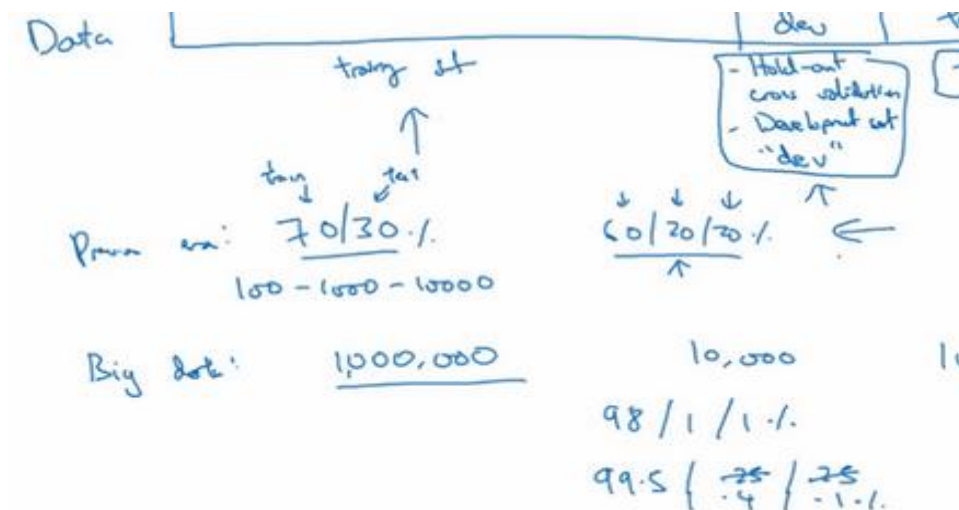 Data
dev
training set
- Hold-out
cross validation
- Development set
"dev"
train test
Previous era: 70/30 % 60/20/20 %
100 - 1000 - 10000
Big data: 1,000,000 10,000
98 / 1 / 1 %
99.5 / .25 / .25
.4 / .1 %